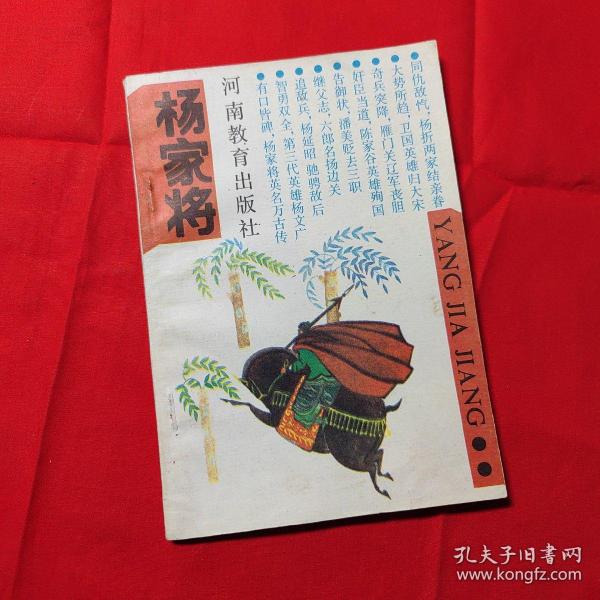 杨家将
河南教育出版社
●同仇敌忾，杨折两家结亲眷
●大势所趋，卫国英雄归大宋
●奇兵突降，雁门关辽军丧胆
●奸臣当道，陈家谷英雄殉国
●告御状，潘美贬去三职
●继父志，六郎名扬边关
●追敌兵，杨延昭驰骋敌后
●智勇双全，第三代英雄杨文广
●有口皆碑，杨家将英名万古传
YANG JIA JIANG●●
孔夫子旧书网
www.kongfz.com